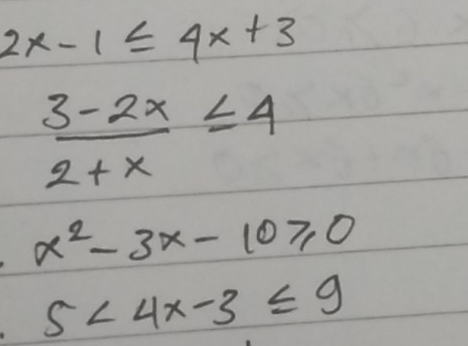 2x - 1 ≤ 4x + 3
3 - 2x / 2 + x ≤ 4
. x² - 3x - 10 ≥ 0
. 5 < 4x - 3 ≤ 9